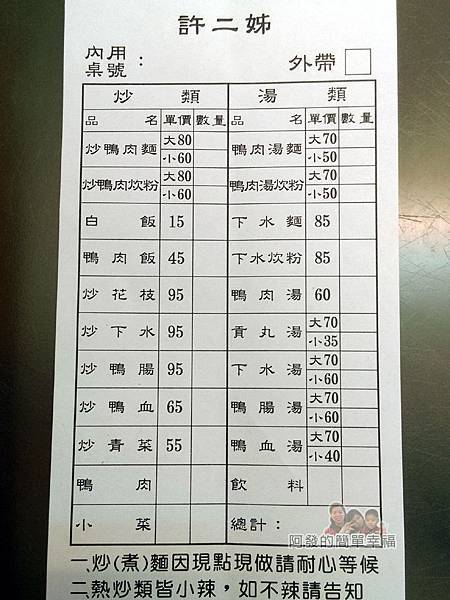 許二姊
內用
桌號：
外帶
炒類 湯類
品名 單價 數量 品名 單價 數量
炒鴨肉麵 大80 小60 鴨肉湯麵 大70 小50
炒鴨肉炊粉 大80 小60 鴨肉湯炊粉 大70 小50
白飯 15 下水麵 85
鴨肉飯 45 下水炊粉 85
炒花枝 95 鴨肉湯 60
炒下水 95 貢丸湯 大70 小35
炒鴨腸 95 下水湯 大70 小60
炒鴨血 65 鴨腸湯 大70 小60
炒青菜 55 鴨血湯 大70 小40
鴨肉 飲料
小菜 總計：
阿發的簡單幸福
一、炒(煮)麵因現點現做請耐心等候
二、熱炒類皆小辣，如不辣請告知